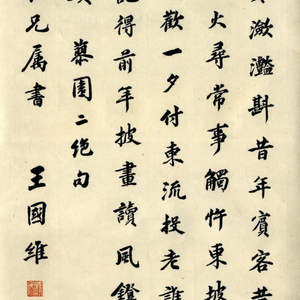 瀲灩斟昔年賓客
火尋常事觸忤東坡
歡一夕付東流投老誰
記得前年披畫讀風鐙
園二絕句
兄属書 王國維